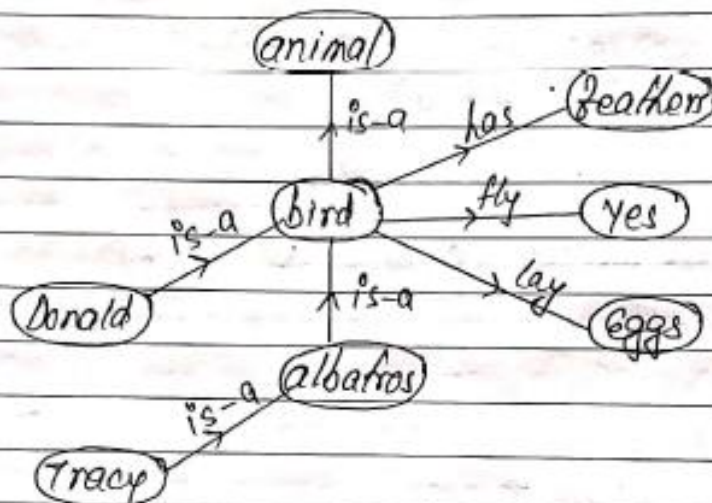 animal
is-a
has
feathers
bird
fly
yes
is-a
lay
Donald
is-a
eggs
albatros
is-a
Tracy